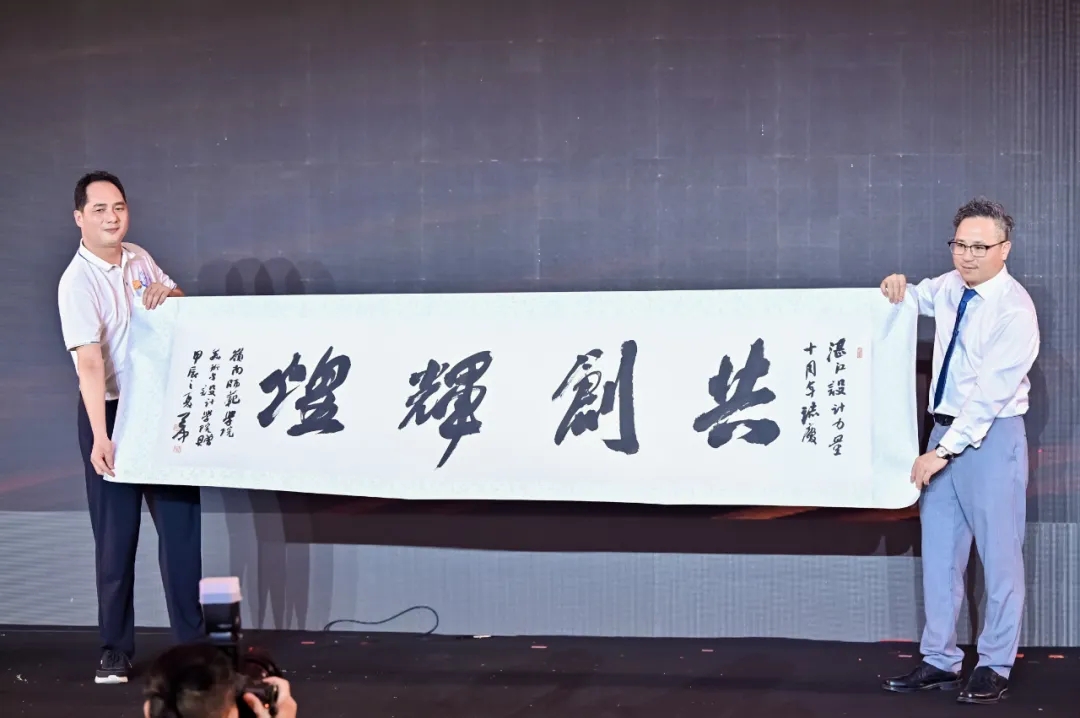 湛江設计力量
十周年誌慶
共創輝煌
嶺南師范學院
美術与設计學院贈
甲辰之夏